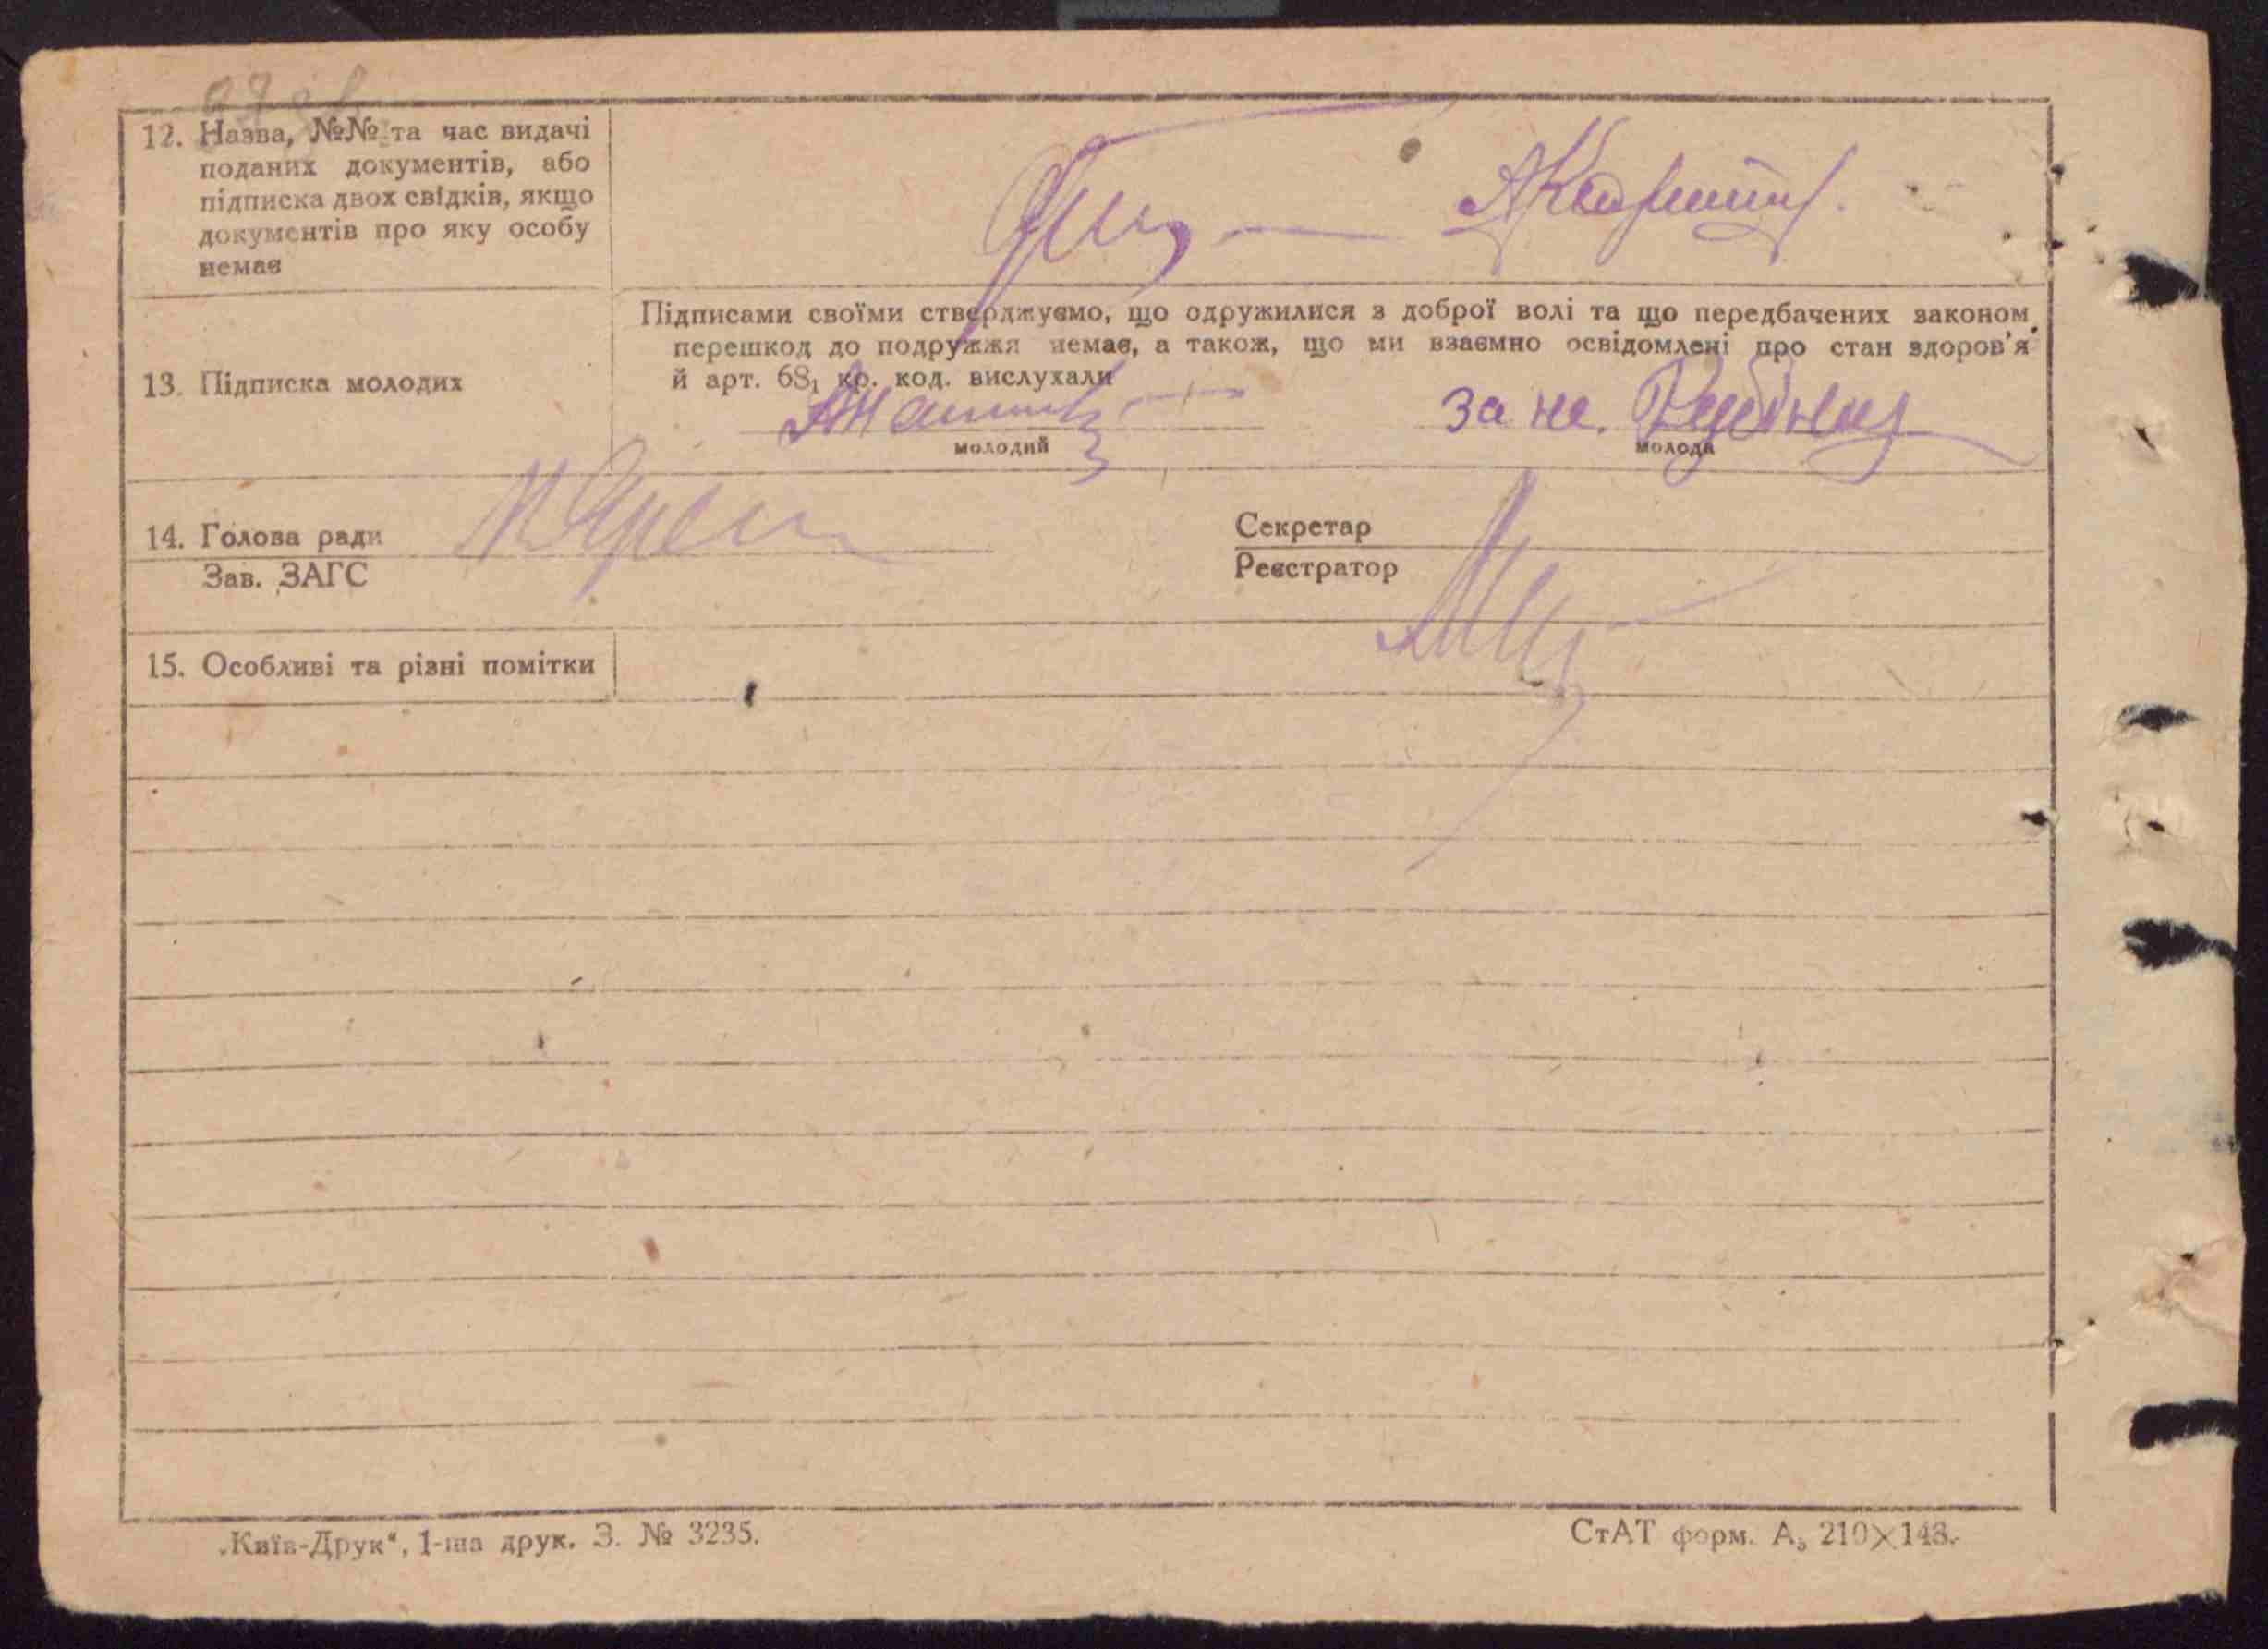 12. Назва, №№ та час видачі
поданих документів, або
підписка двох свідків, якщо
документів про яку особу
немає
Підписами своїми стверджуємо, що одружилися з доброї волі та що передбачених законом
перешкод до подружжя немає, а також, що ми взаємно освідомлені про стан здоров'я
й арт. 68₁ кр. код. вислухали
13. Підписка молодих
за не.
молодий
молода
14. Голова ради
Секретар
Зав. ЗАГС
Реєстратор
15. Особливі та різні помітки
„Київ-Друк“, 1-ша друк. З. № 3235.
СтАТ форм. А₅ 210×148.